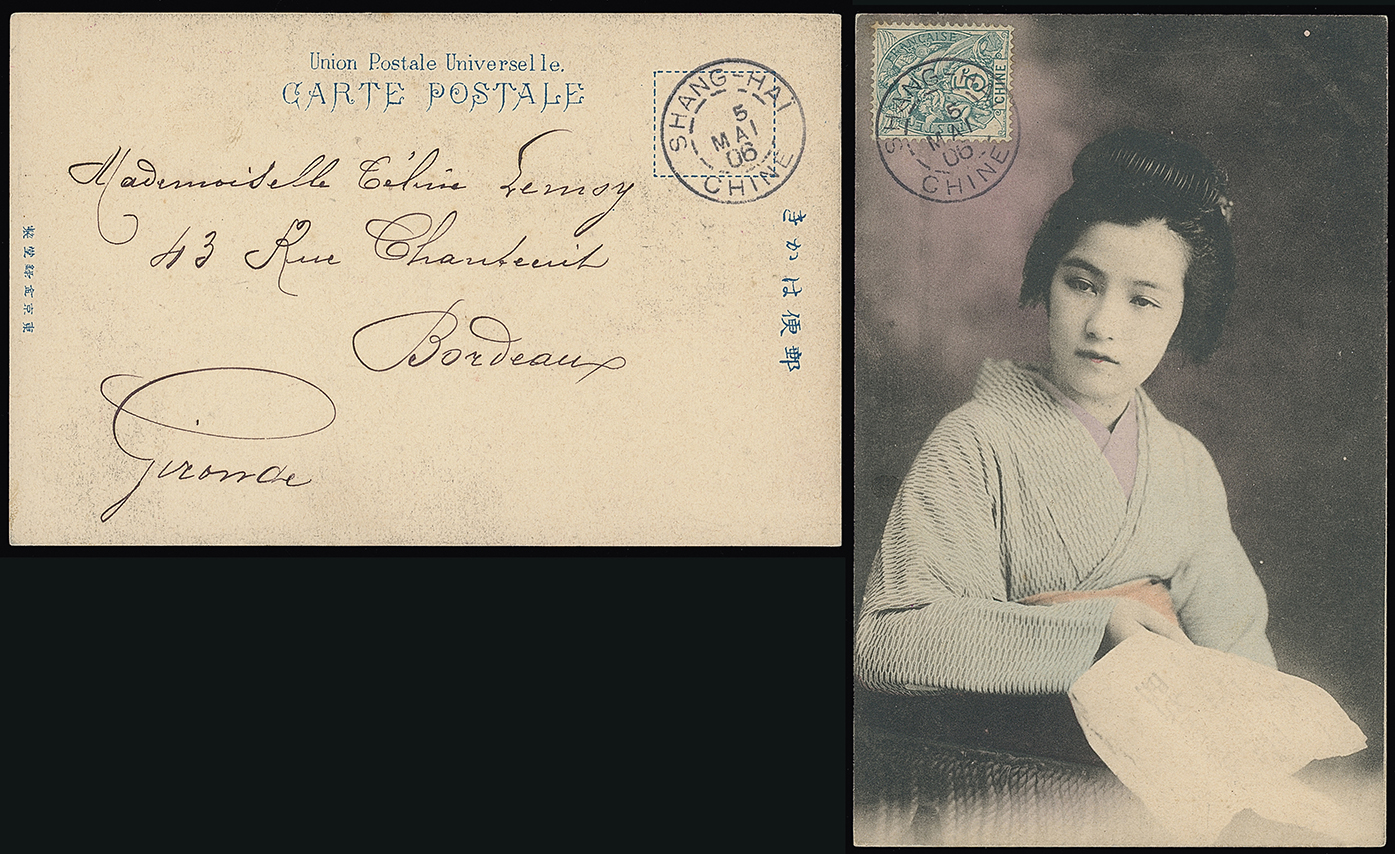 Union Postale Universelle.
CARTE POSTALE
SHANG-HAÏ
5
MAI
06
CHINE
Mademoiselle Céline
43 Rue
Bordeaux
Gironde
きかは便郵
東京
FRANÇAISE
5
CHINE
SHANG-HAÏ
5
MAI
06
CHINE